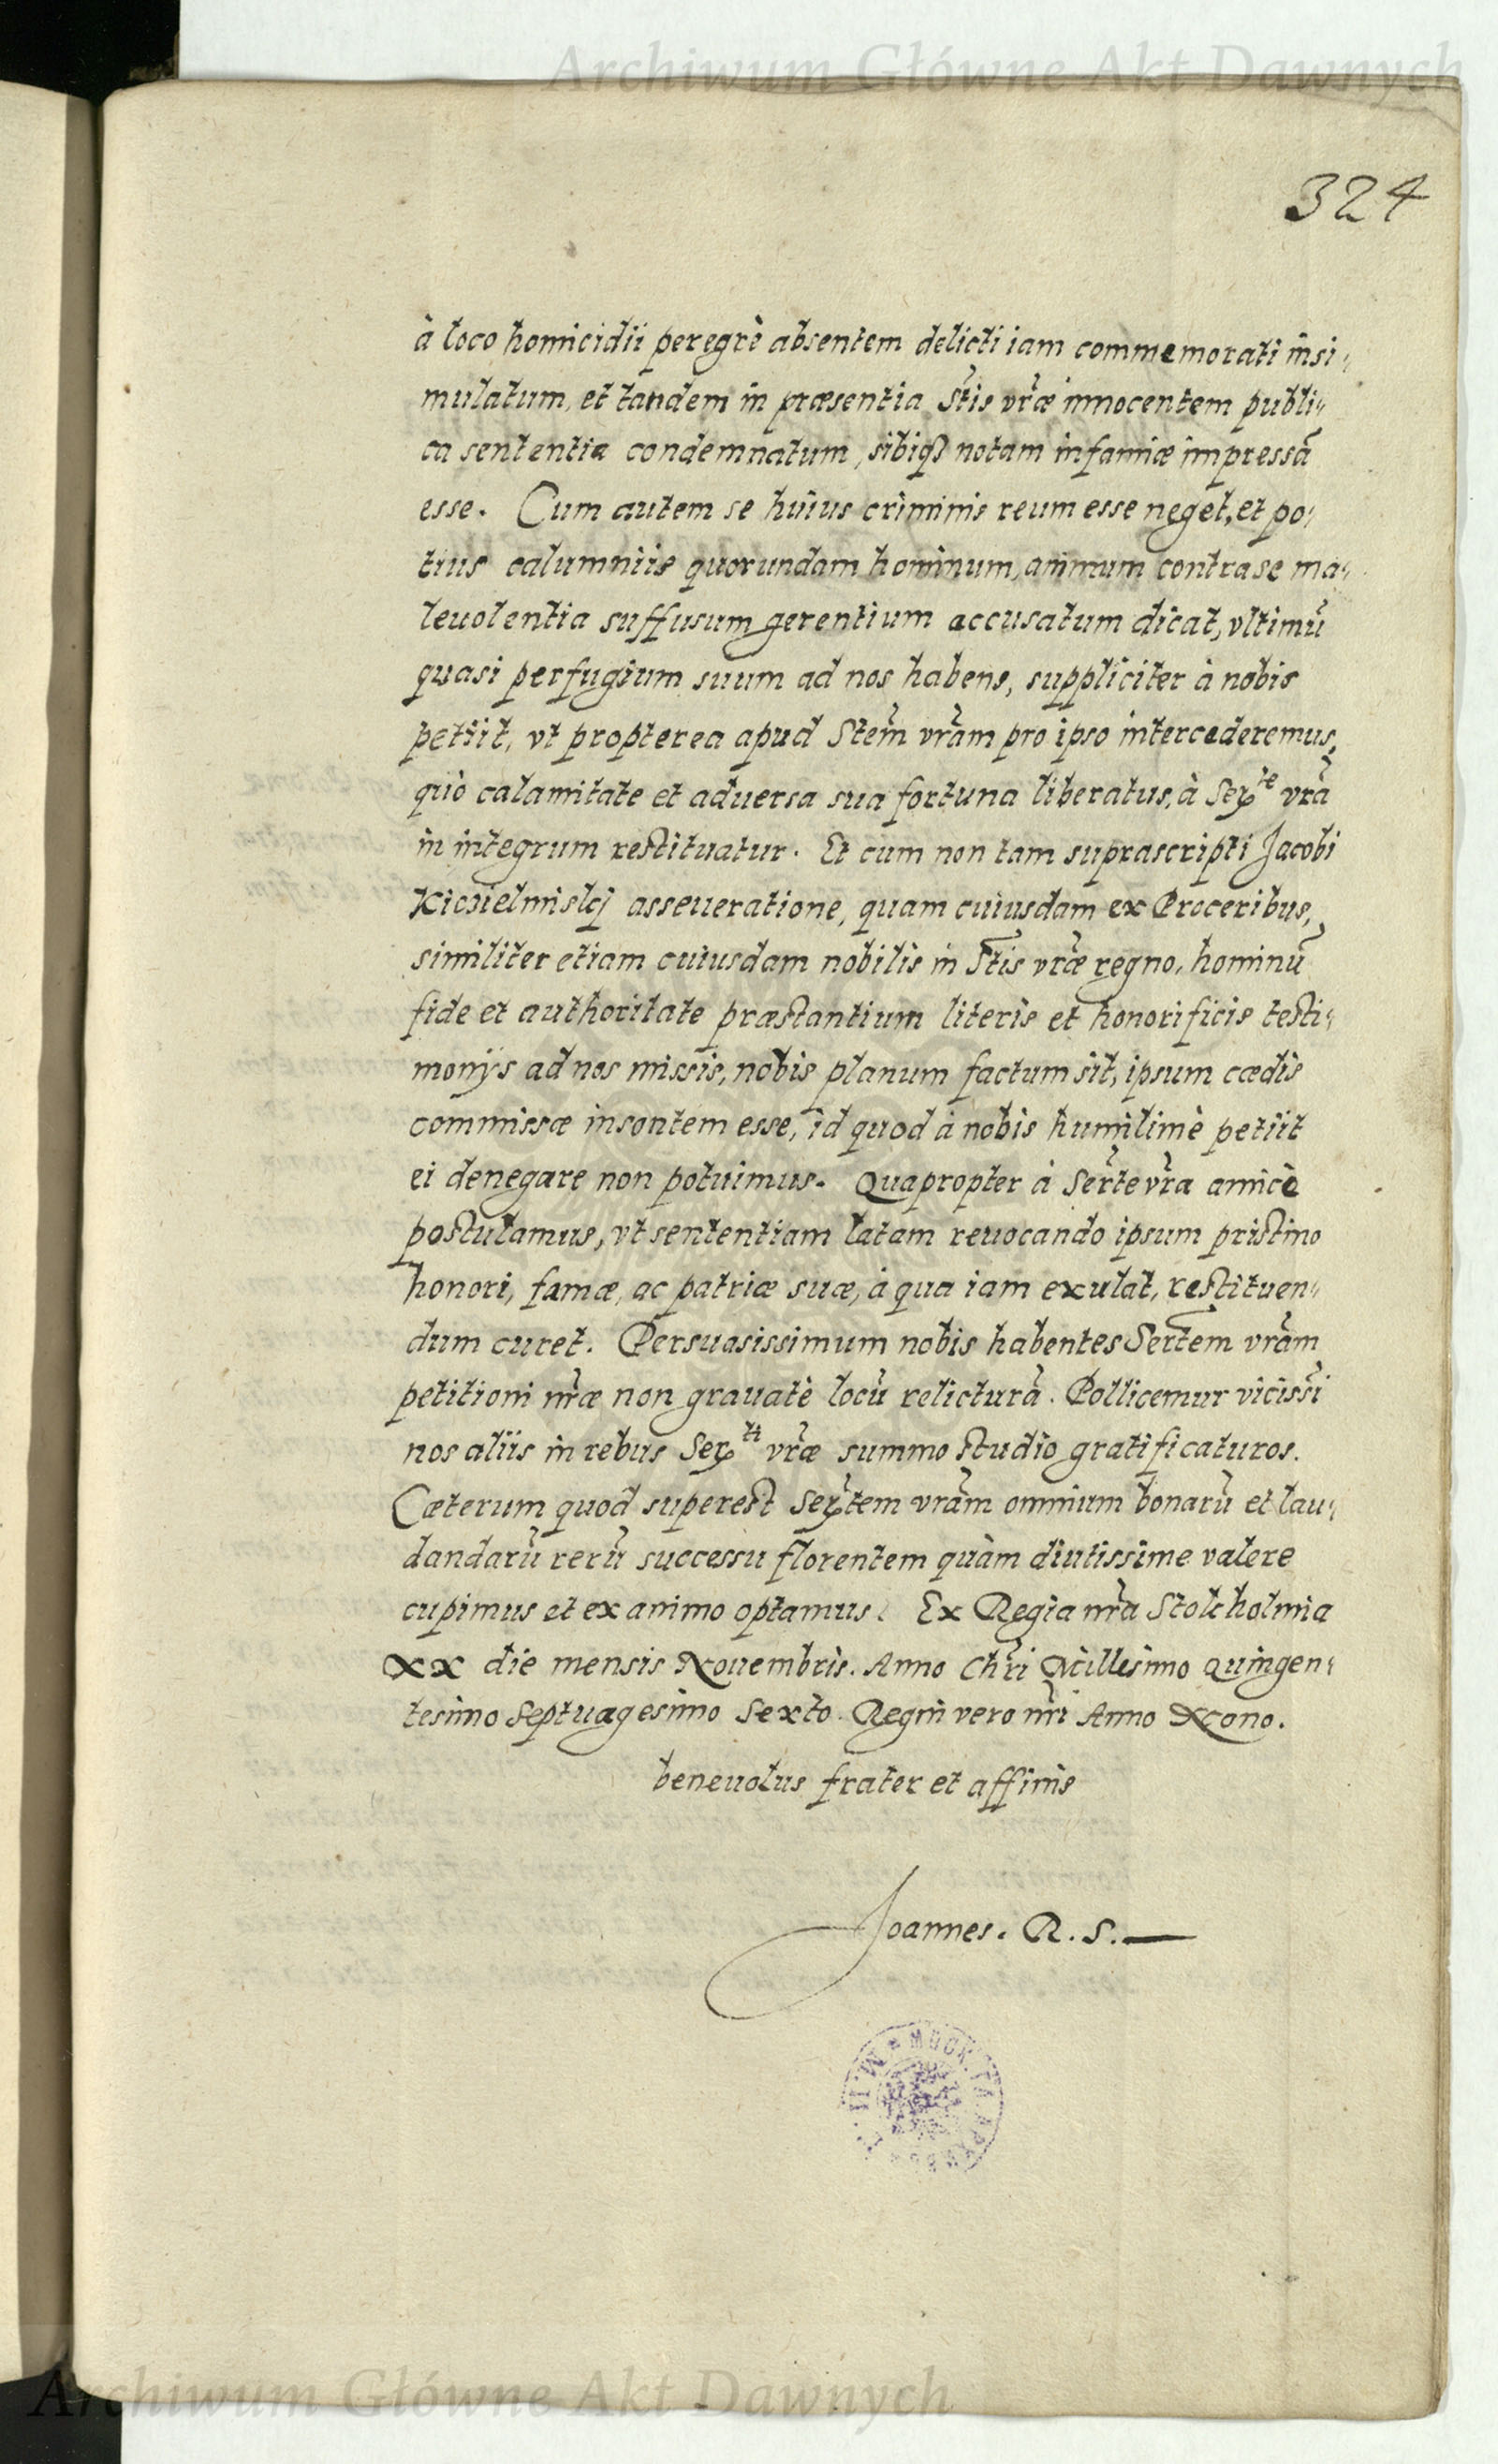 Archiwum Główne Akt Dawnych
324
à loco homicidii peregrè absentem delicti iam commemorati insi,
mulatum, et tandem in præsentia Stis vræ innocentem publi,,
ca sententia condemnatum, sibiqȝ notam infamiæ impressã
esse. Cum autem se huius criminis reum esse neget, et po,
tius calumniis quorundam hominum, animum contra se ma,
leuolentia suffusum gerentium accusatum dicat, vltimũ
quasi perfugium suum ad nos habens, suppliciter à nobis
petiit, vt propterea apud Stem vram pro ipso intercederemus,
quò calamitate et aduersa sua fortuna liberatus, à Serte vra
in integrum restituatur. Et cum non tam suprascripti Jacobi
asseueratione, quam cuiusdam ex Proceribus,
similiter etiam cuiusdam nobilis in Stis vræ regno, hominũ
fide et authoritate præstantium literis et honorificis testi,
monÿs ad nos missis, nobis planum factum sit, ipsum cædis
commissæ insontem esse, id quod à nobis humilimè petiit
ei denegare non potuimus. Quapropter à Serte vra amicè
postulamus, vt sententiam latam reuocando ipsum pristino
honori, famæ, ac patriæ suæ, à qua iam exulat, restituen,,
dum curet. Persuasissimum nobis habentes Sertem vram
petitioni nræ non grauatè locũ relicturã. Pollicemur vicissĩ
nos aliis in rebus Serti vræ summo studio gratificaturos.
Cæterum quod superest Sertem vram omnium bonarũ et lau,
dandarũ rerũ successu florentem quàm diutissime valere
cupimus et ex animo optamus. Ex Regia nra Stolcholmia
XX die mensis Nouembris. Anno Chri Millesimo Quingen,
tesimo Septuagesimo Sexto. Regni vero nri Anno Nono.
beneuolus frater et affinis
Joannes. R. S.
Archiwum Główne Akt Dawnych